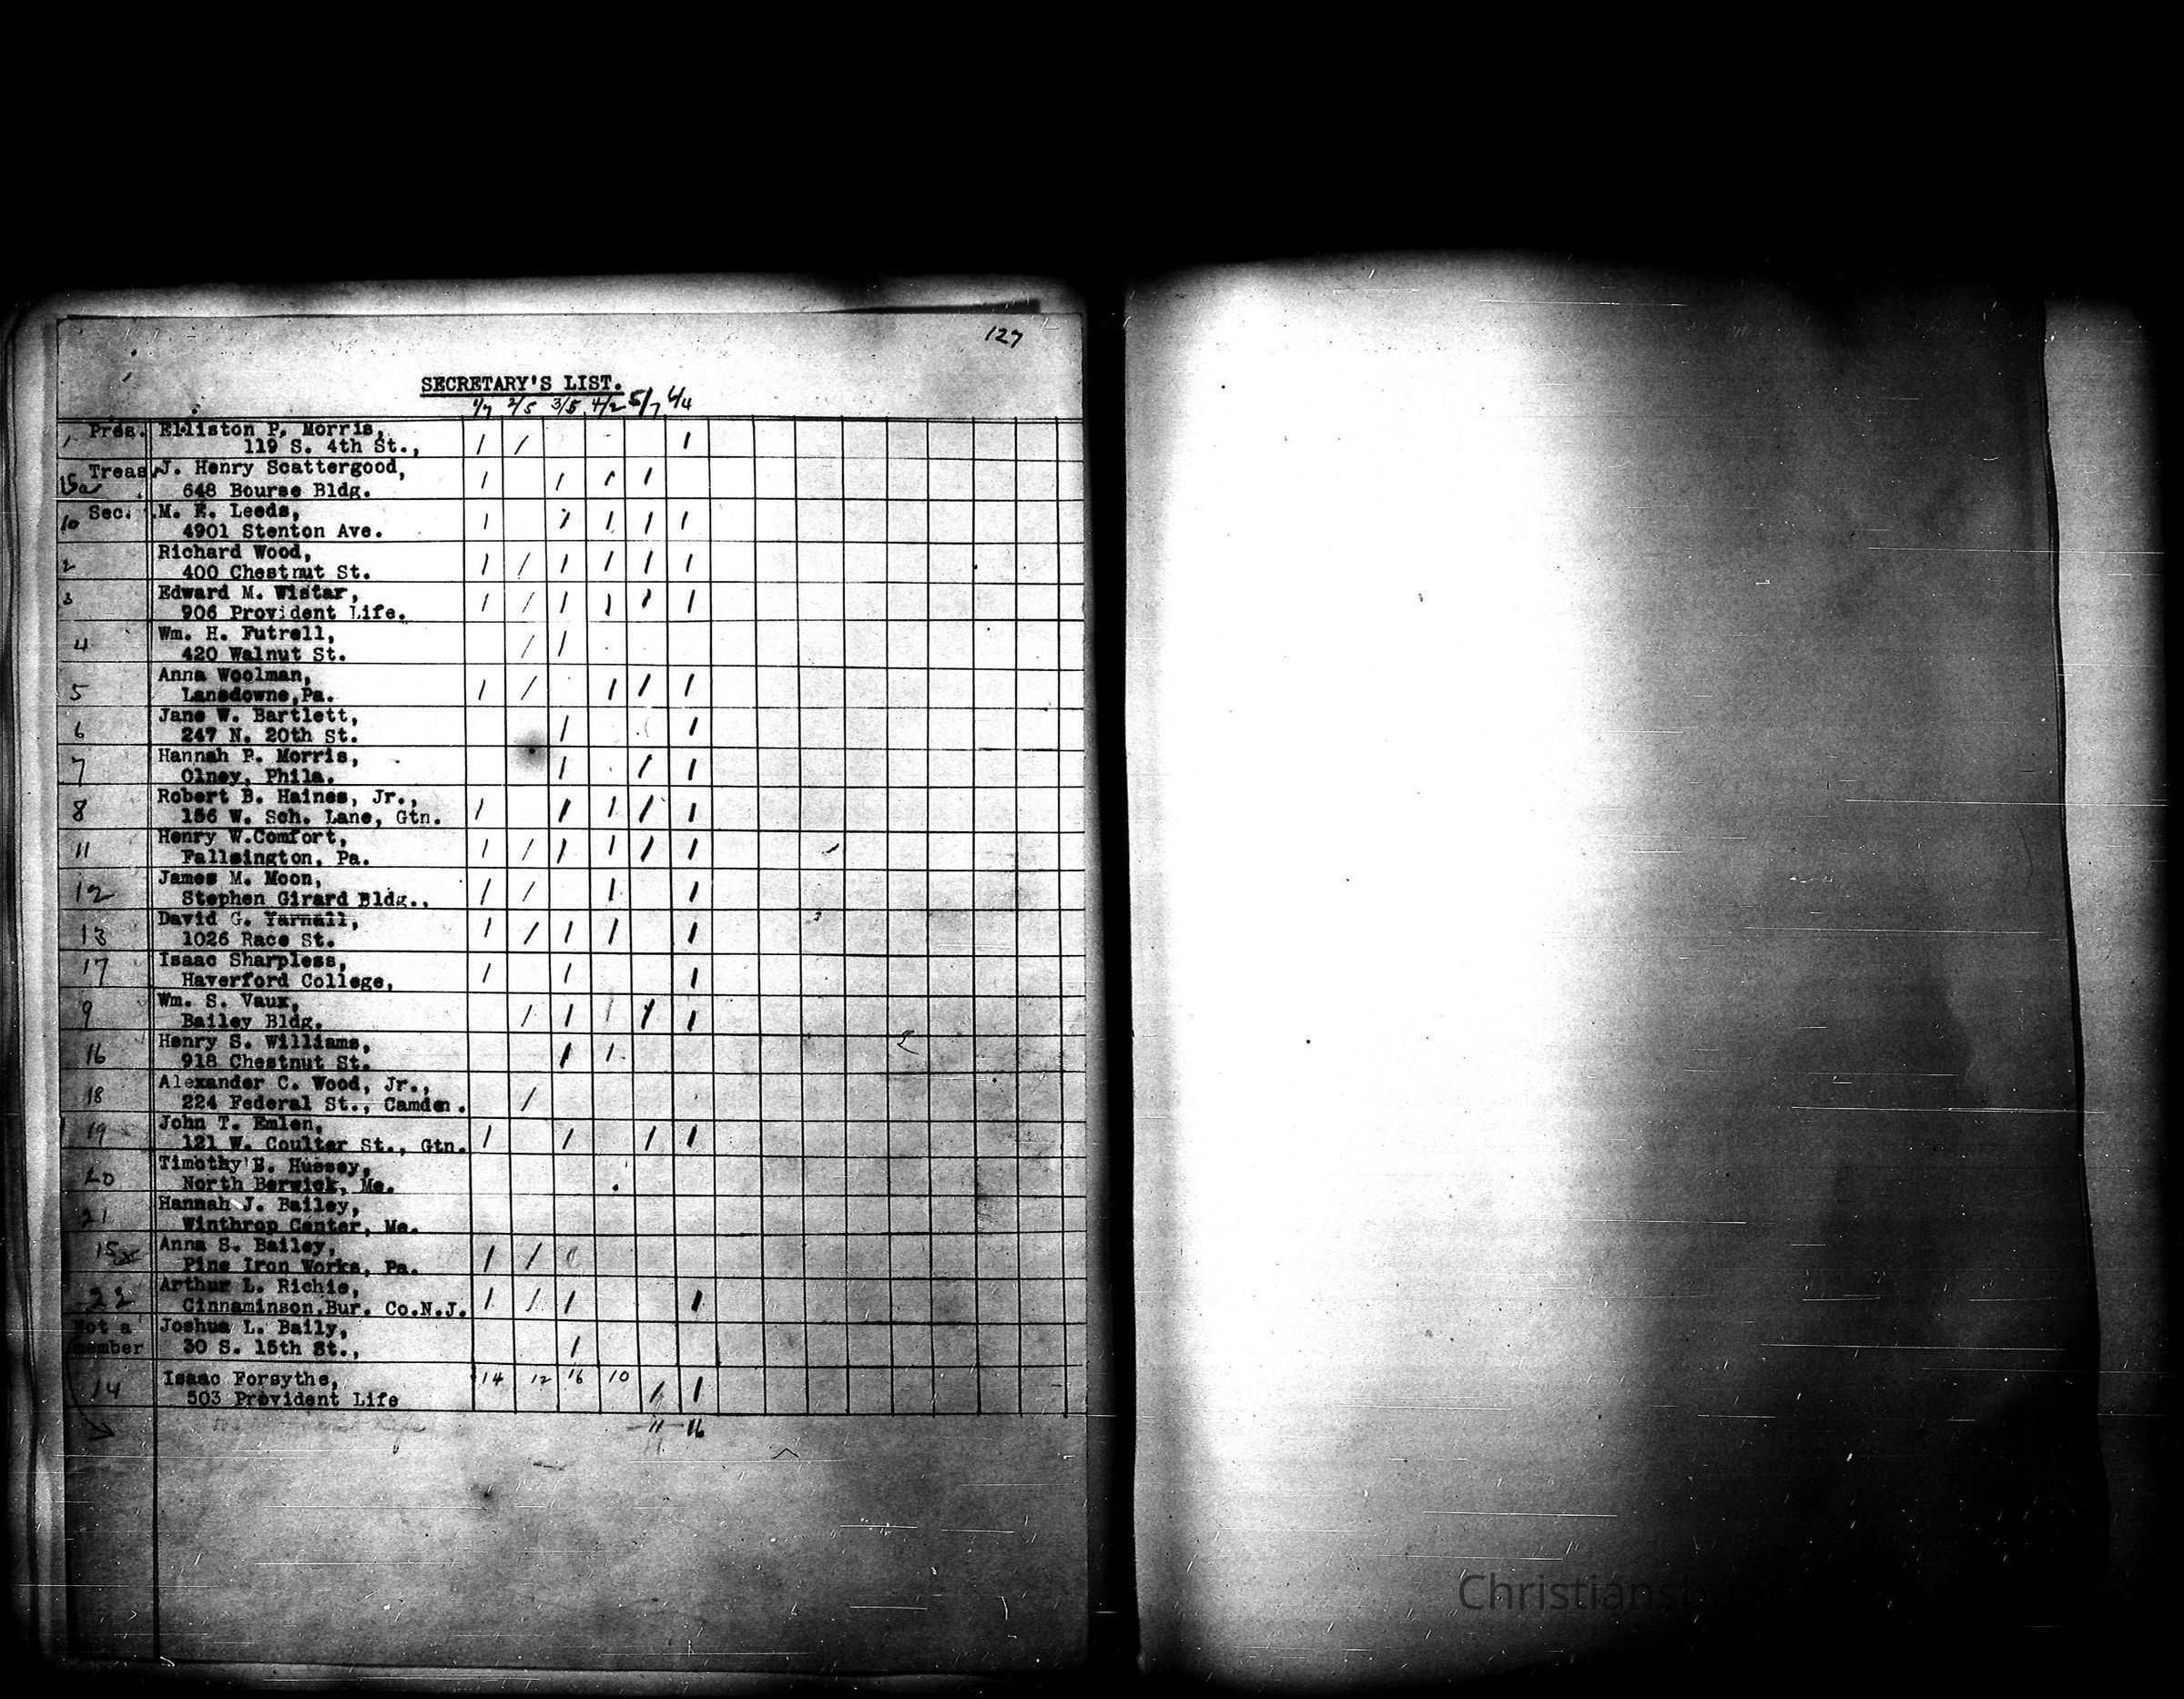 127
SECRETARY'S LIST.
1/7 2/5 3/5 4/2 5/7 6/4
1 Pres. Elliston P. Morris, 1 / 1
119 S. 4th St.,
Treas. J. Henry Scattergood, 1 1 1 1
15a 648 Bourse Bldg.
10 Sec. M. E. Leeds, 1 1 1 1 1
4901 Stenton Ave.
2 Richard Wood, 1 / 1 1 1 1
400 Chestnut St.
3 Edward M. Wistar, 1 / 1 1 1 1
906 Provident Life.
4 Wm. H. Futrell, / 1
420 Walnut St.
5 Anna Woolman, 1 / 1 1 1
Lansdowne,Pa.
6 Jane W. Bartlett, 1 1
247 N. 20th St.
7 Hannah P. Morris, 1 1 1
Olney, Phila.
8 Robert B. Haines, Jr., 1 1 1 1 1
156 W. Sch. Lane, Gtn.
11 Henry W.Comfort, 1 / 1 1 1 1
Fallsington, Pa.
12 James M. Moon, 1 / 1 1
Stephen Girard Bldg.,
13 David G. Yarnall, 1 / 1 1 1
1026 Race St.
17 Isaac Sharpless, 1 1 1
Haverford College,
9 Wm. S. Vaux, / 1 1 1 1
Bailey Bldg.
16 Henry S. Williams, 1 1
918 Chestnut St.
18 Alexander C. Wood, Jr., /
224 Federal St., Camden.
19 John T. Emlen, 1 1 1 1
121 W. Coulter St., Gtn.
20 Timothy B. Hussey,
North Berwick, Me.
21 Hannah J. Bailey,
Winthrop Center, Me.
15x Anna S. Bailey, 1 /
Pine Iron Works, Pa.
22 Arthur L. Richie, 1 / 1 1
Cinnaminson,Bur. Co.N.J.
Not a Joshua L. Baily, 1
member 30 S. 15th St.,
14 Isaac Forsythe, 14 12 16 10 1 1
503 Provident Life
11 16